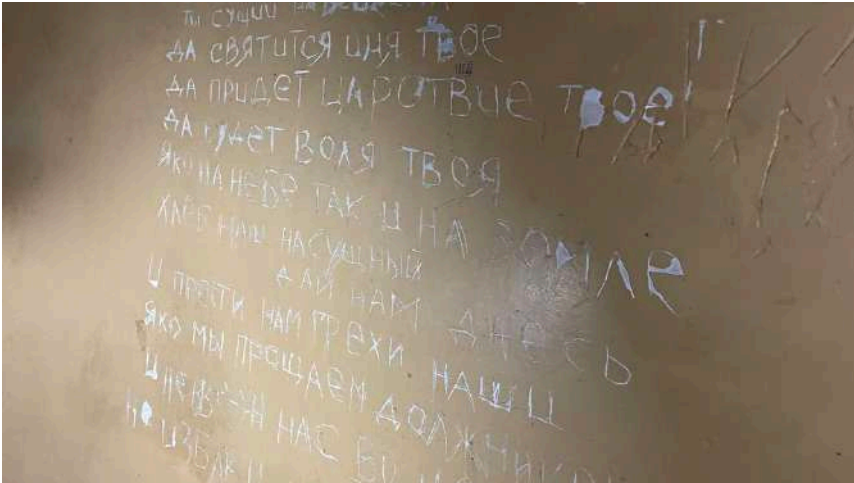 ТЫ СУЩИЙ
ДА СВЯТИТСЯ ИМЯ ТВОЕ
ДА ПРИДЕТ ЦАРСТВИЕ ТВОЕ
ДА БУДЕТ ВОЛЯ ТВОЯ
ЯКО НА НЕБЕ ТАК И НА ЗЕМЛЕ
ХЛЕБ НАШ НАСУЩНЫЙ
ДАЙ НАМ ДНЕСЬ
И ПРОСТИ НАМ ГРЕХИ НАШИ
ЯКО МЫ ПРОЩАЕМ
И НЕ НАС
ИЗБАВИ